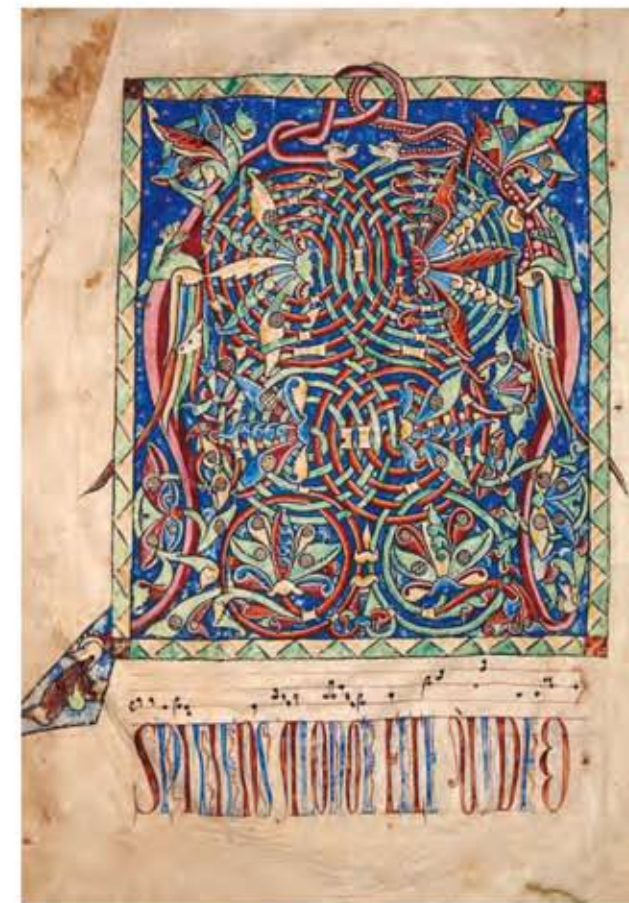 A
SPICIENS ALONGE ECCE VIDEO